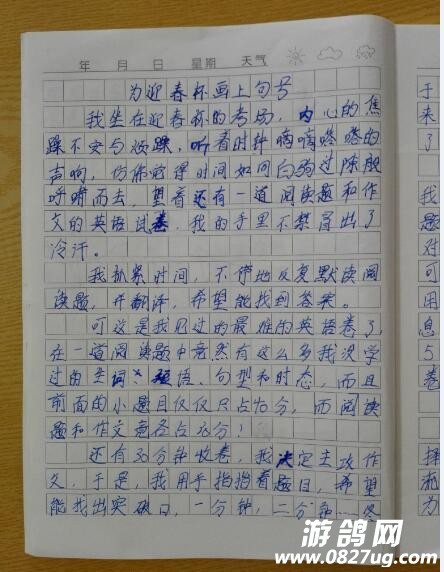 年 月 日 星期 天气
为迎春杯画上句号
我坐在迎春杯的考场，内心的焦
躁不安与烦躁，听着时钟嘀嘀嗒嗒的
声响，仿佛觉得时间如同白驹过隙般
呼啸而去，望着还有一道阅读题和作
文的英语试卷，我的手里不禁冒出了
冷汗。
我抓紧时间，不停地反复默读阅
读题，并翻译，希望能找到答案。
可这是我见过的最难的英语卷了，
在一道阅读题中竟然有这么多我没学
过的生词、短语、句型和时态，而且
前面的小题目仅仅只占40分，而阅读
题和作文竟各占30分！
还有30分钟收卷，我决定主攻作
文，于是，我用手指指着题目，希望
能找出突破口，一分钟，二分钟……冬
于
来
了
我
题
对
可
用
息
5
卷
择
为
游鸽网
www.0827ug.com